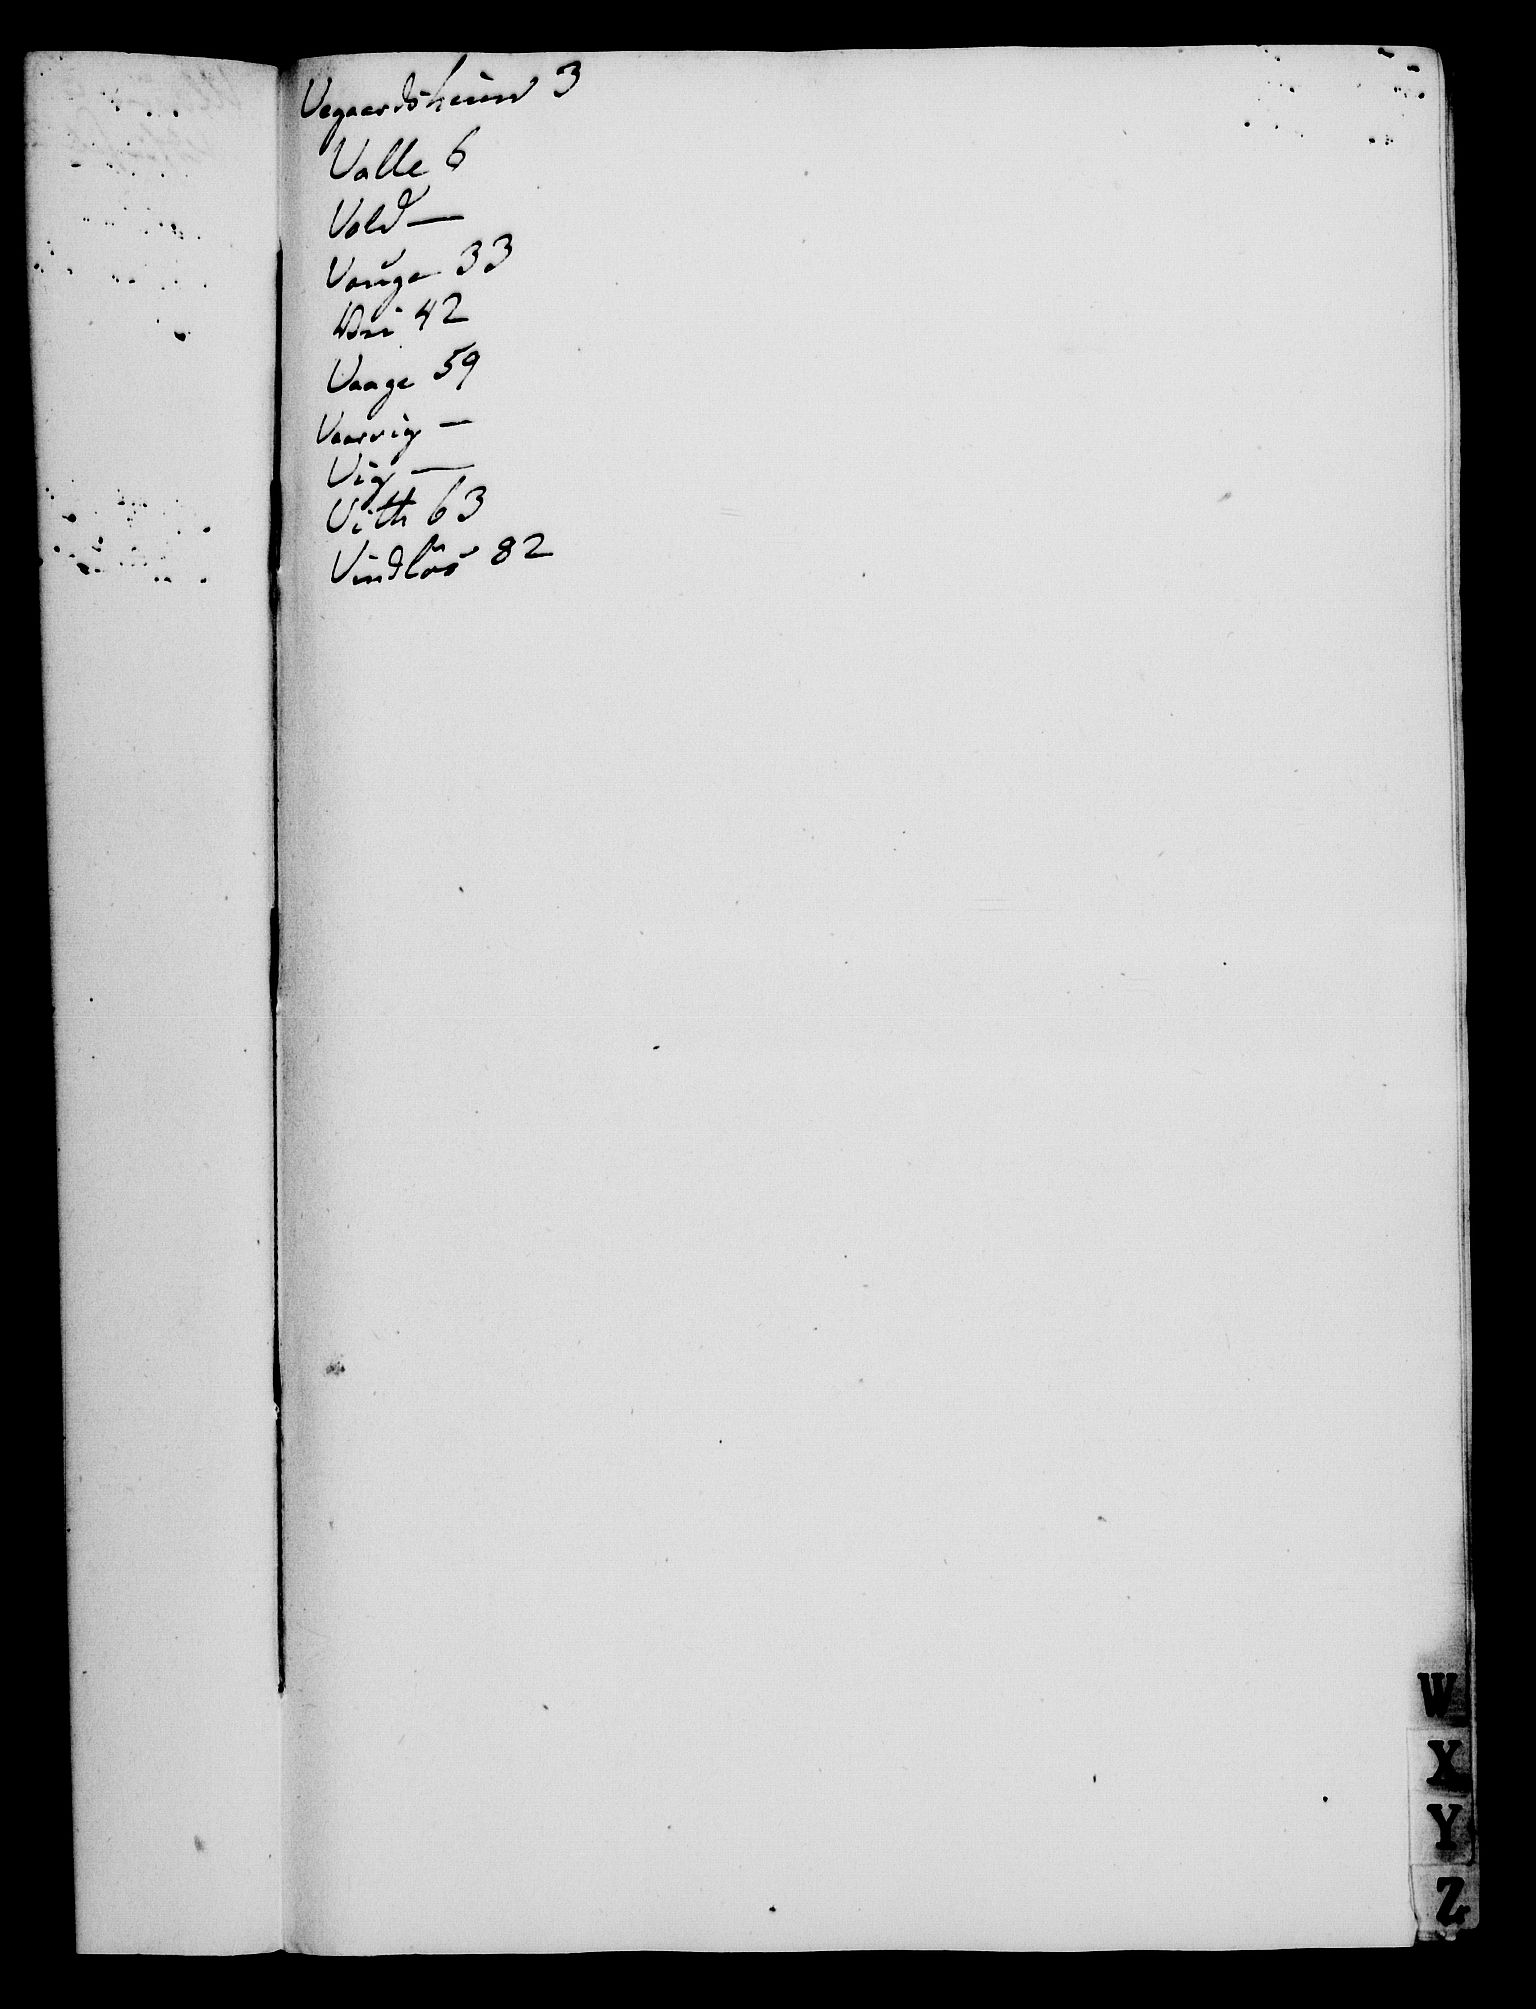 Vegaardsheien 3
Valle 6
Vold —
Vauge 33
42
Vaage 59
Vaarvig —
Vig —
Vith 63
82
W
X
Y
Z